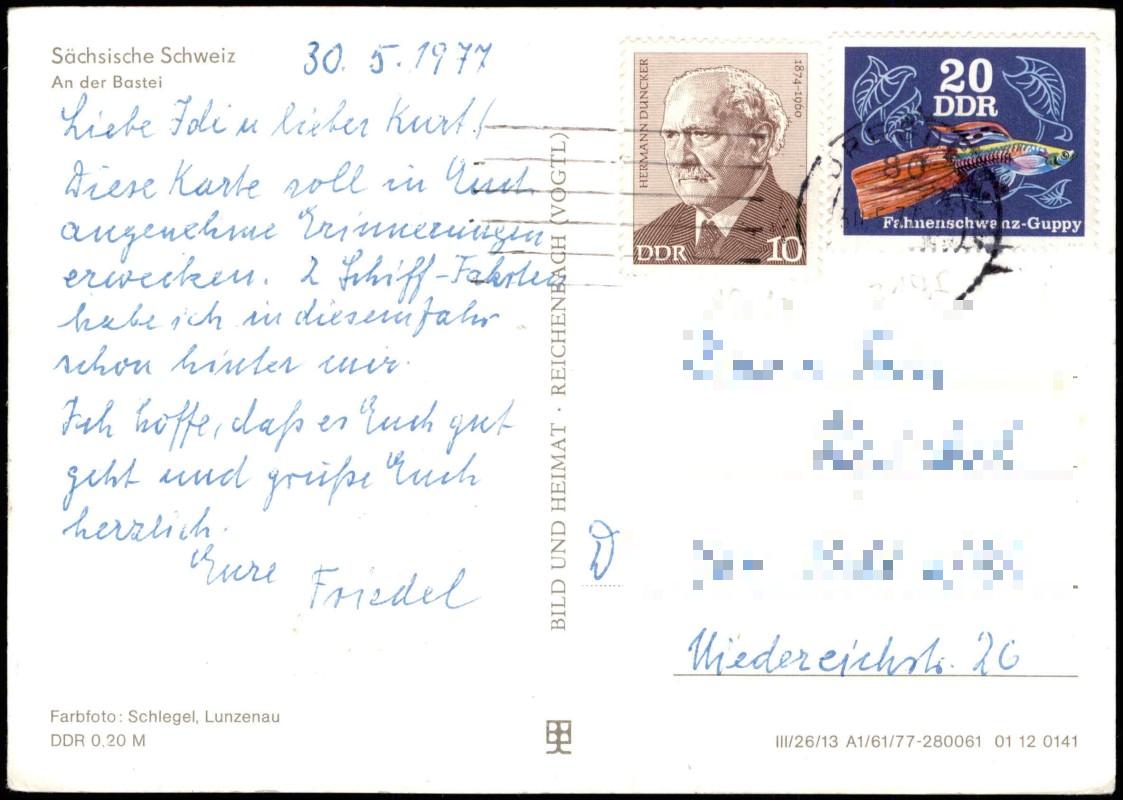 Sächsische Schweiz
An der Bastei
30. 5. 1977
Liebe Idi u lieber Kurt!
Diese Karte soll in Euch
angenehme Erinnerungen
erwecken. 2 Schiff-Fahrten
habe ich in diesem Jahr
schon hinter mir.
Ich hoffe, daß es Euch gut
geht und grüße Euch
herzlich.
Eure Friedel
Farbfoto: Schlegel, Lunzenau
DDR 0,20 M
BILD UND HEIMAT · REICHENBACH (VOGTL)
HERMANN DUNCKER
1874-1960
DDR 10
20
DDR
Fahnenschwanz-Guppy
D
Niedereichstr. 26
III/26/13 A1/61/77-280061 01 12 0141